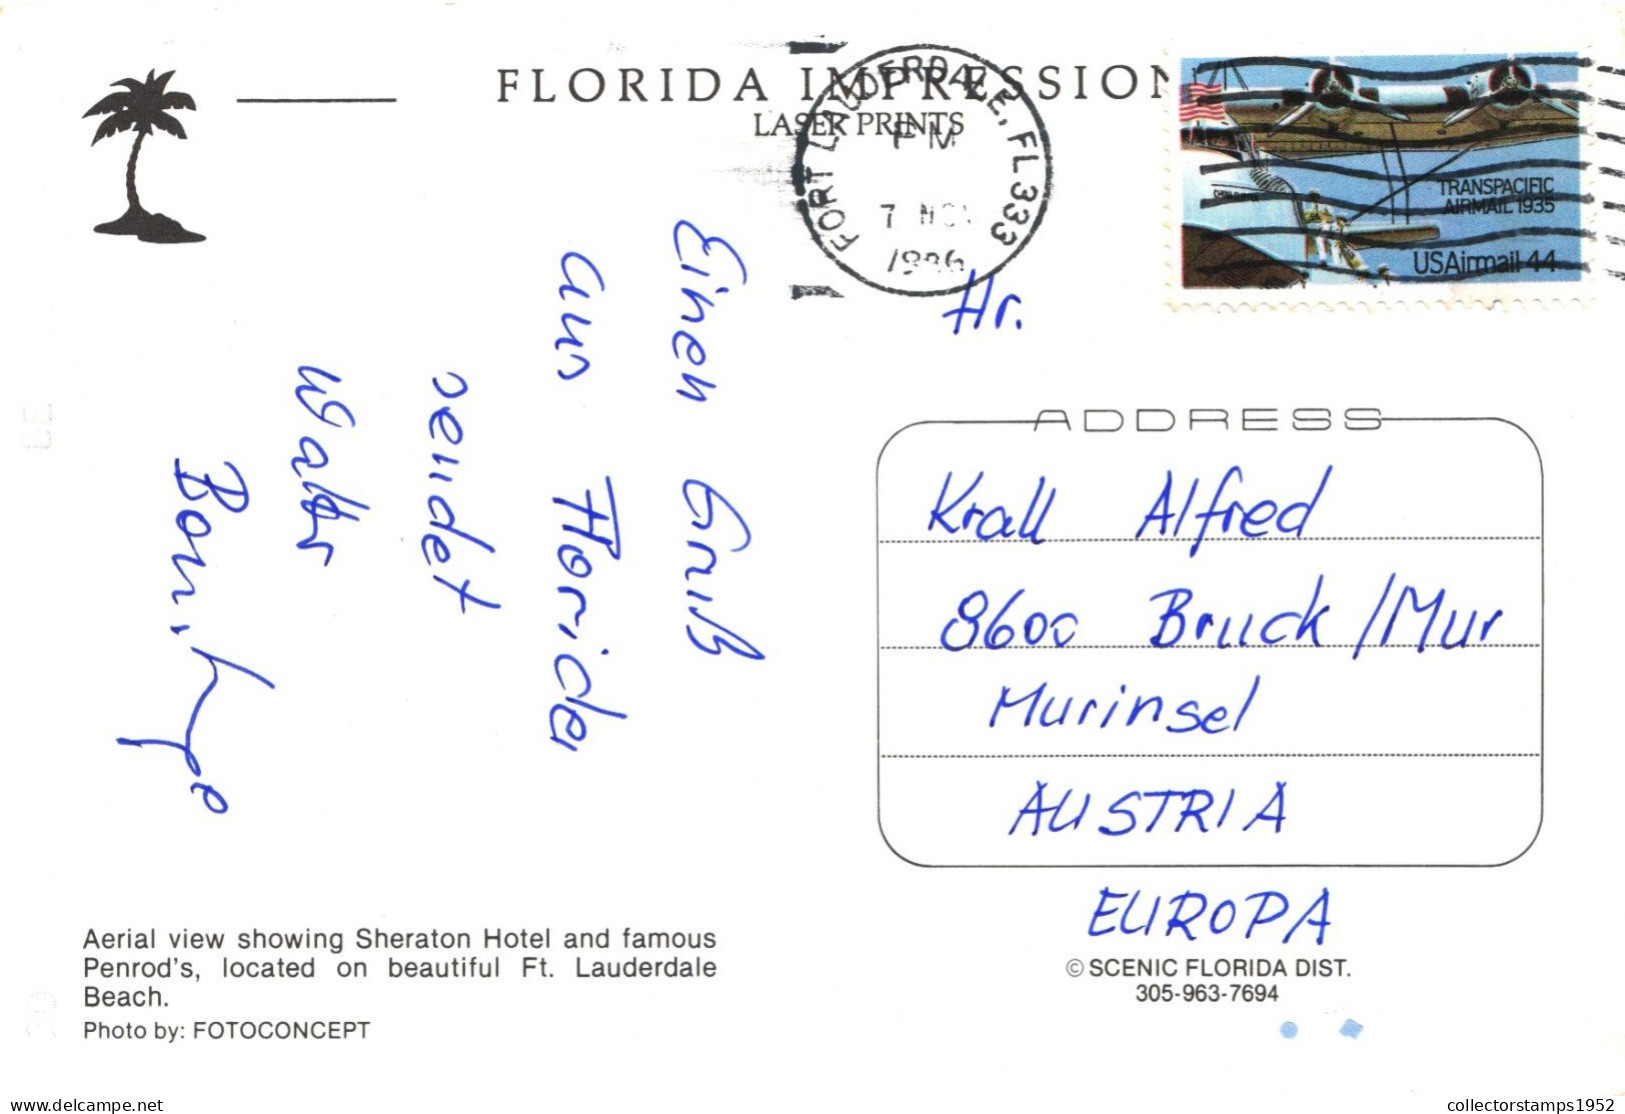 FLORIDA IMPRESSION
LASER PRINTS
FORT LAUDERDALE, FL 333
PM
7 NOV
1986
TRANSPACIFIC
AIRMAIL 1935
USAirmail 44
Einen Gruß
aus Florida
sendet
Walter
Hr.
ADDRESS
Krall Alfred
8600 Bruck/Mur
Murinsel
AUSTRIA
EUROPA
Aerial view showing Sheraton Hotel and famous
Penrod's, located on beautiful Ft. Lauderdale
Beach.
Photo by: FOTOCONCEPT
© SCENIC FLORIDA DIST.
305-963-7694
collectorstamps1952